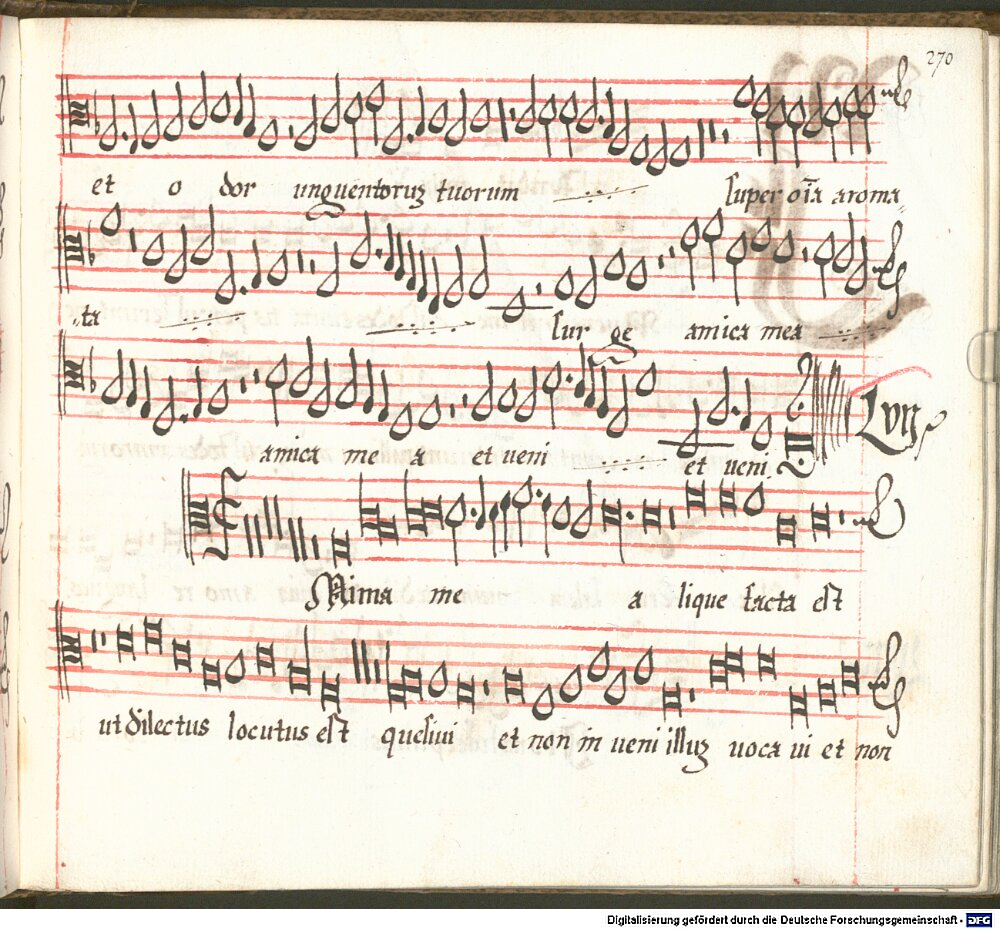 270
et o dor unguentoruꝫ tuorum super oīa aroma
ta sur ge amica mea
amica me a et ueni et ueni
Nima me a lique facta est
ut dilectus locutus est quesiui et non in ueni illuꝫ uoca ui et non
Digitalisierung gefördert durch die Deutsche Forschungsgemeinschaft - DFG